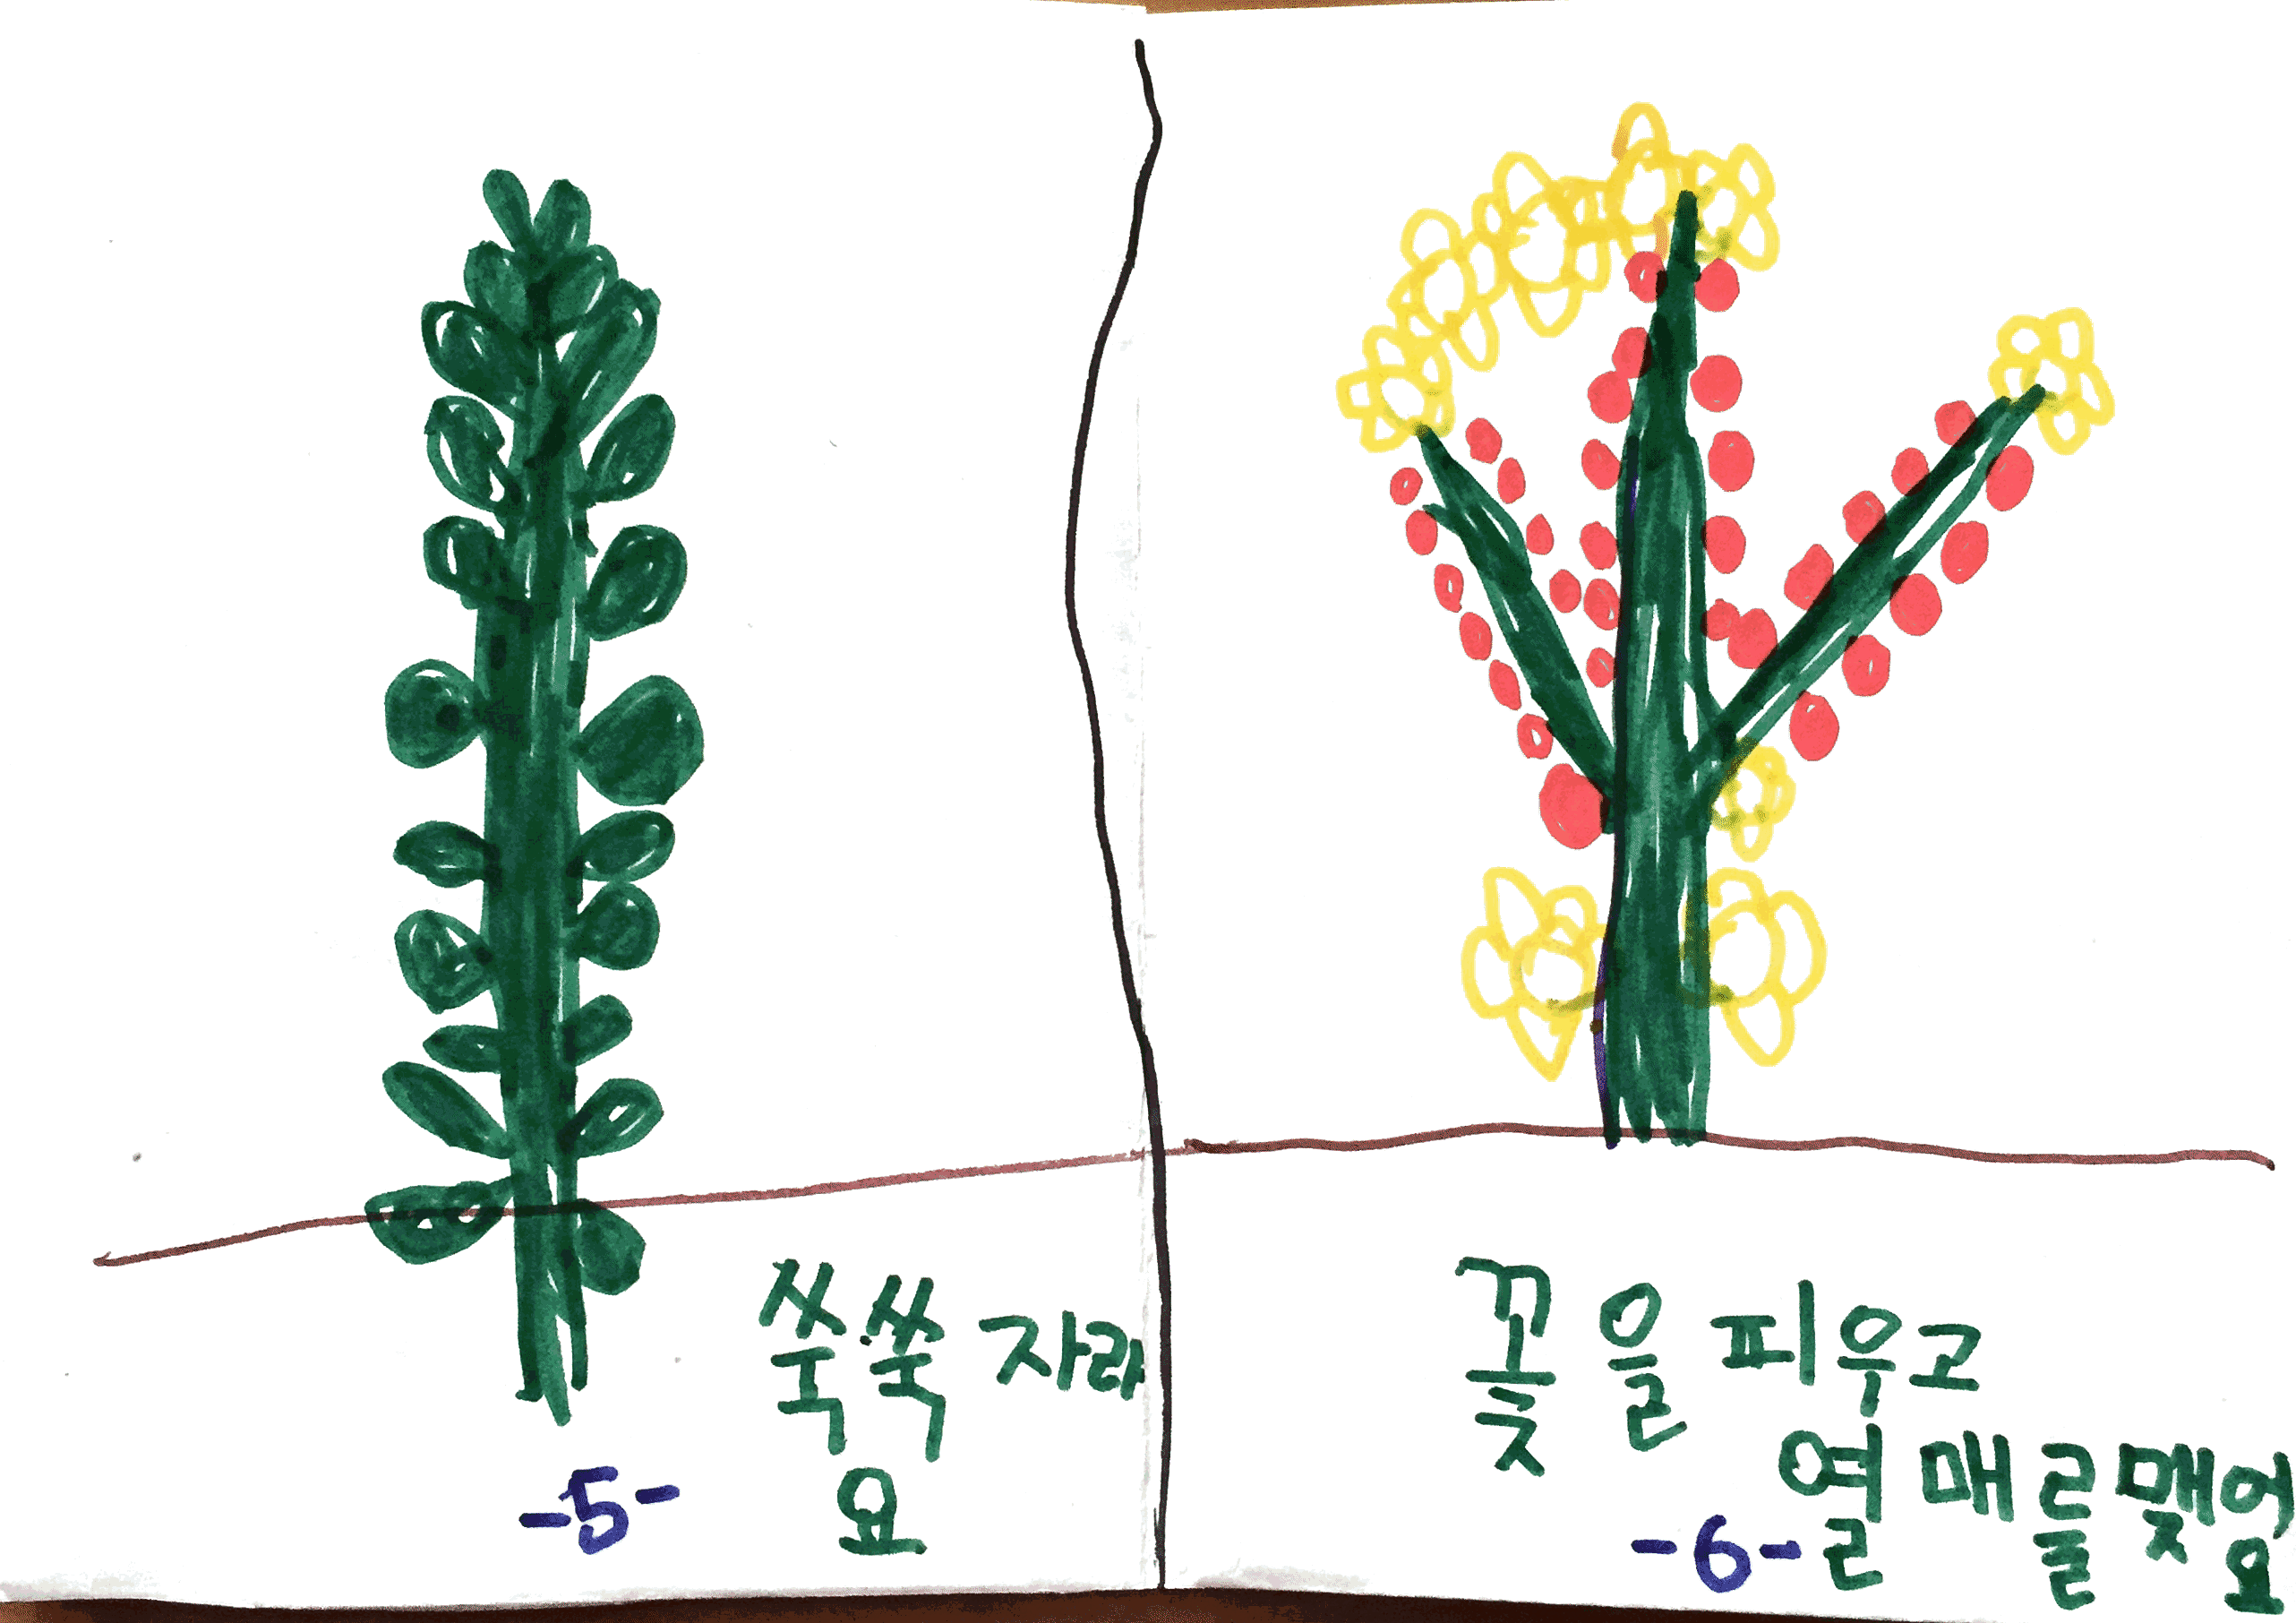 쑥쑥 자라
요
-5-
꽃을 피우고
열매를 맺어
요
-6-